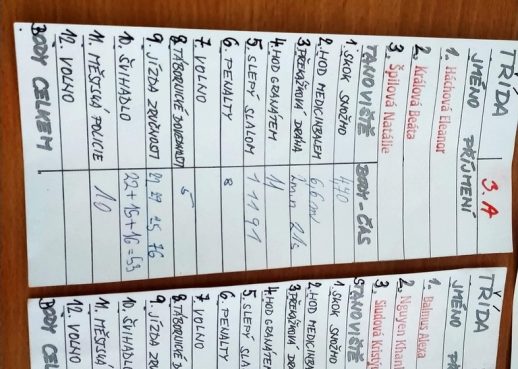 TŘÍDA 3.A
JMÉNO PŘÍJMENÍ
1. Háchová Eleanor
2. Králová Beáta
3. Špilová Natálie
STANOVIŠTĚ BODY - ČAS
1. SKOK SNOŽMO 470
2. HOD MEDICINBALEM
3. PŘEKÁŽKOVÁ DRÁHA
4. HOD GRANÁTEM 11
5. SLEPÝ SLALOM
6. PENALTY 8
7. VOLNO
8. TÁBORNICKÉ DOVEDNOSTI 5
9. JÍZDA ZRUČNOSTI
10. ŠVIHADLO 22+15+16=53
11. MĚSTSKÁ POLICIE 10
12. VOLNO
BODY CELKEM
TŘÍDA
JMÉNO
1. Balmus Alexa
2. Nguyen Khanh
3. Siudová Kristý
STANOVIŠTĚ
1. SKOK SNOŽMO
2. HOD MEDICINBAL
3. PŘEKÁŽKOVÁ DRÁ
4. HOD GRANÁTEM
5. SLEPÝ SLA
6. PENALTY
7. VOLNO
8. TÁBORNICKÉ D
9. JÍZDA ZRU
10. ŠVIHADL
11. MĚSTSKÁ
12. VOLNO
BODY